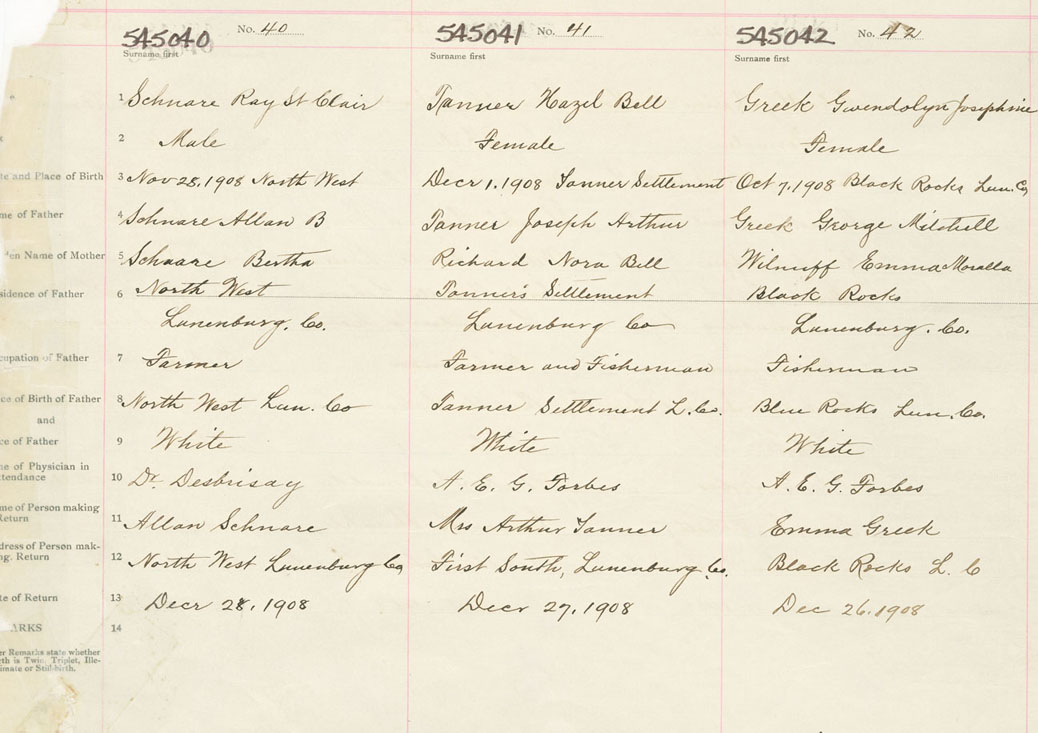 545040 No. 40 545041 No. 41 545042 No. 42
Surname first Surname first Surname first
1 Schnare Ray St Clair Tanner Hazel Bell Greek Gwendolyn Josephine
2 Male Female Female
te and Place of Birth 3 Nov 28, 1908 North West Decr 1. 1908 Tanner Settlement Oct 7, 1908 Black Rocks Lun. Co,
me of Father 4 Schnare Allan B Tanner Joseph Arthur Greek George Mitchell
den Name of Mother 5 Schnare Bertha Richard Nora Bell Emma
sidence of Father 6 North West Tanner's Settlement Black Rocks
Lunenburg. Co. Lunenburg Co Lunenburg. Co.
cupation of Father 7 Farmer Farmer and Fisherman Fisherman
ce of Birth of Father 8 North West Lun. Co Tanner Settlement L. Co. Blue Rocks Lun. Co.
and
ce of Father 9 White White White
me of Physician in
ttendance 10 Dr. Desbrisay A. E. G. Forbes A. E. G. Forbes
me of Person making
Return 11 Allan Schnare Mrs Arthur Tanner Emma Greek
dress of Person mak-
ng. Return 12 North West Lunenburg Co, First South, Lunenburg Co. Black Rocks L. C
te of Return 13 Decr 28, 1908 Decr 27, 1908 Dec 26. 1908
ARKS 14
er Remarks state whether
rth is Twin, Triplet, Ille-
imate or Still-birth.